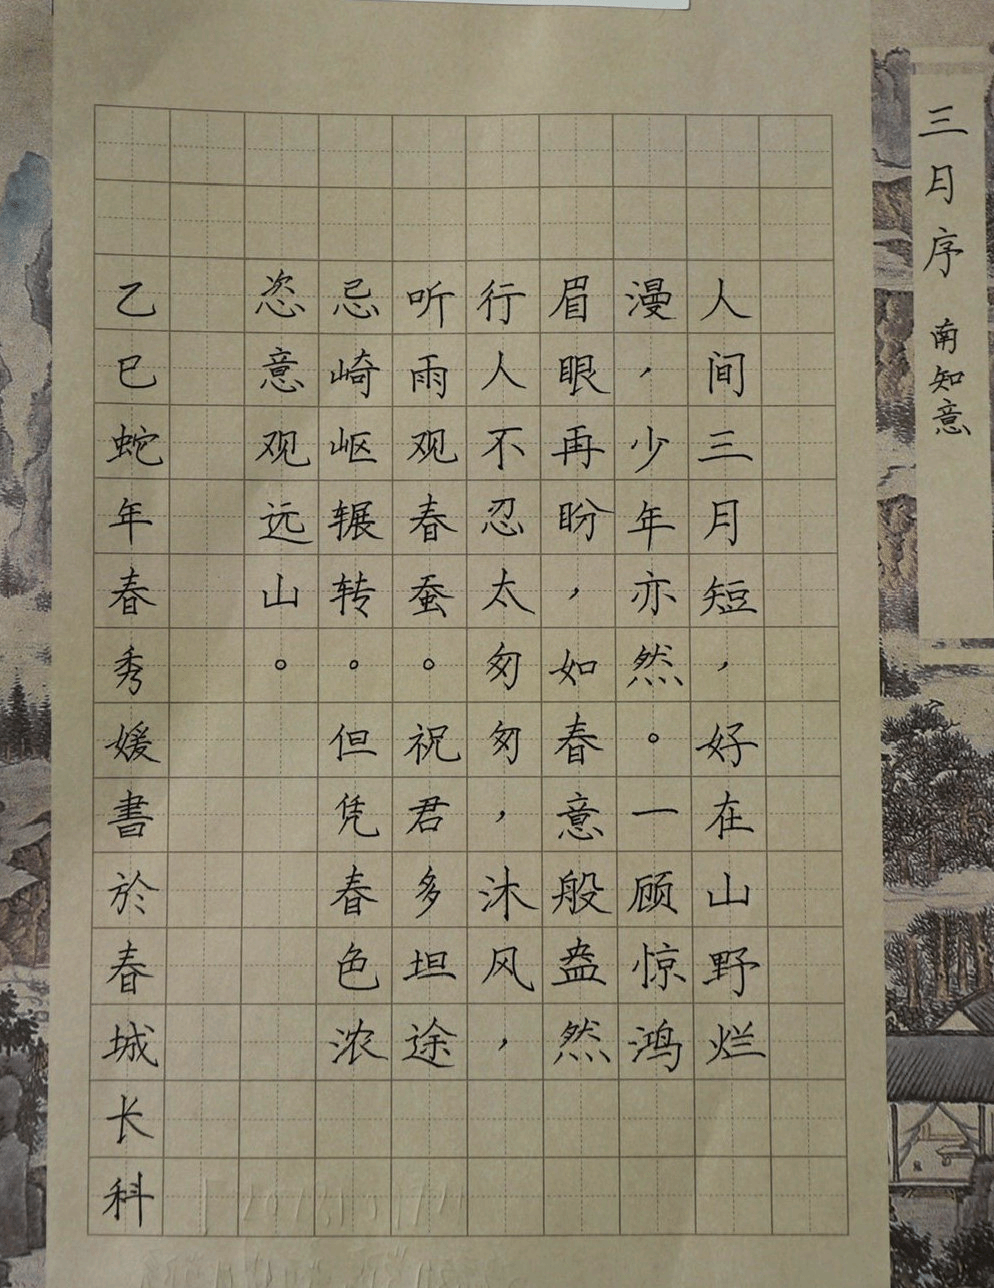 三月序 南知意
人间三月短，好在山野烂
漫，少年亦然。一顾惊鸿
眉眼再盼，如春意般盎然
行人不忍太匆匆，沐风，
听雨观春蚕。祝君多坦途
忌崎岖辗转。但凭春色浓
恣意观远山。
乙巳蛇年春秀媛書於春城长科